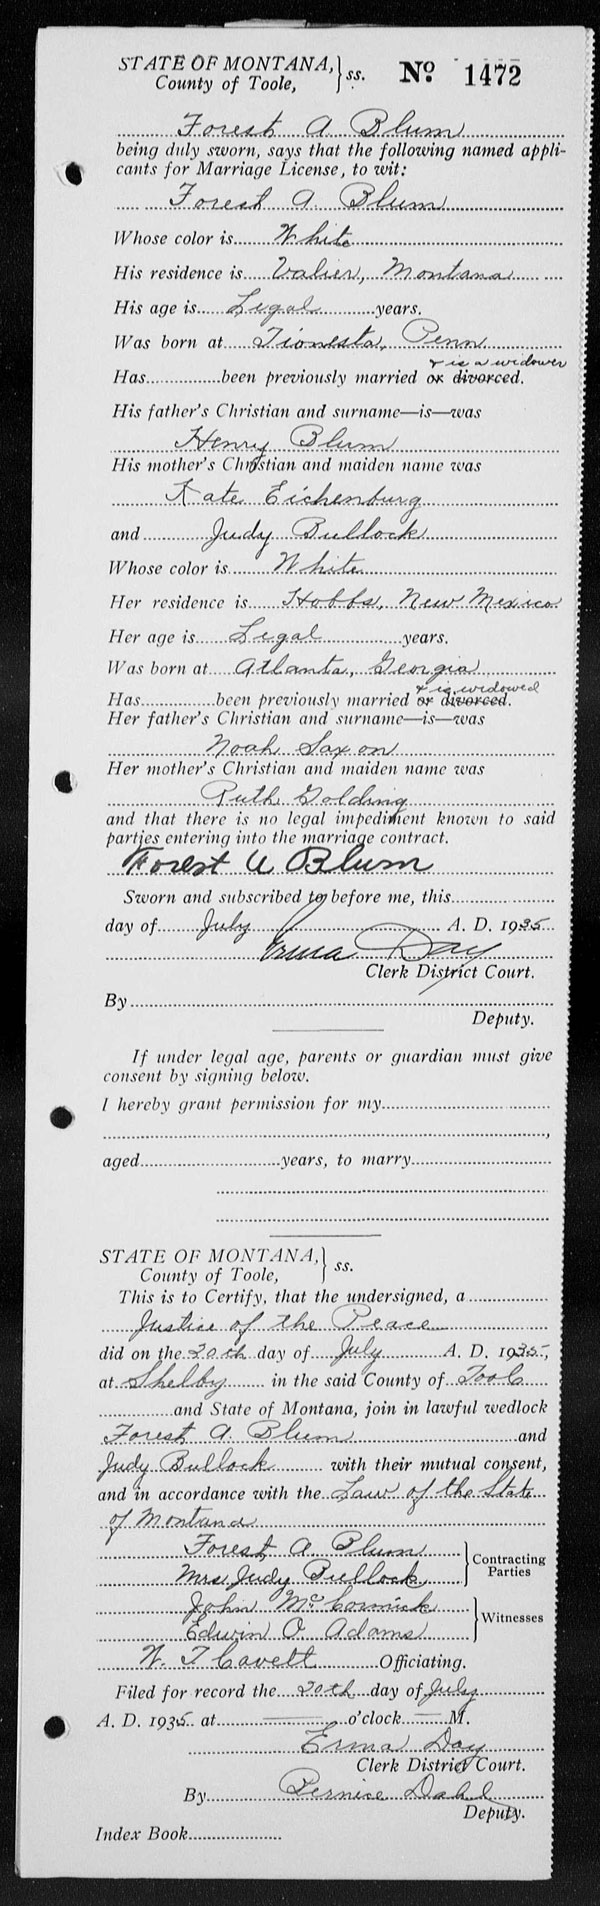 STATE OF MONTANA, } ss. No 1472
County of Toole,
Forest A Blum
being duly sworn, says that the following named appli-
cants for Marriage License, to wit:
Forest A. Blum
Whose color is White
His residence is Valier, Montana
His age is Legal years.
Was born at Tionesta, Penn
& is a widower
Has been previously married or divorced.
His father's Christian and surname—is—was
Henry Blum
His mother's Christian and maiden name was
Kate Eichenburg
and Judy Bullock
Whose color is White
Her residence is Hobbs, New Mexico
Her age is Legal years.
Was born at Atlanta, Georgia
& is widowed
Has been previously married or divorced.
Her father's Christian and surname—is—was
Noah Saxon
Her mother's Christian and maiden name was
Ruth Golding
and that there is no legal impediment known to said
parties entering into the marriage contract.
Forest A Blum
Sworn and subscribed to before me, this
day of July A. D. 1935
Erma Day
Clerk District Court.
By
Deputy.
If under legal age, parents or guardian must give
consent by signing below.
I hereby grant permission for my
,
aged years, to marry
STATE OF MONTANA, } ss.
County of Toole,
This is to Certify, that the undersigned, a
Justice of the Peace
did on the 20th day of July A. D. 1935,
at Shelby in the said County of Toole
and State of Montana, join in lawful wedlock
Forest A. Blum and
Judy Bullock with their mutual consent,
and in accordance with the Law of the State
of Montana
Forest A Blum } Contracting
Mrs Judy Bullock Parties
John McCormick } Witnesses
Edwin O Adams
W. T Cavett Officiating.
Filed for record the 20th day of July
A. D. 1935 at o'clock M.
Erma Day
Clerk District Court.
By Bernice Dahl
Deputy.
Index Book